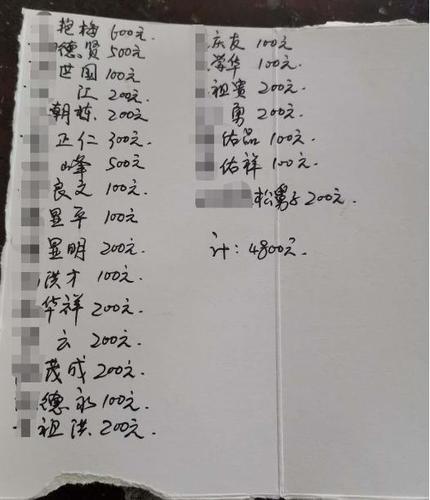 艳梅 600元.
德贤 500元
世国 100元
江 200元.
朝栋. 200元
正仁 300元
峰 500元
良文 100元.
显平 100元
显明 200元.
洪才 100元.
华祥 200元.
云 200元.
茂成 200元.
德永 100元.
祖洪. 200元.
庆友 100元
荣华 100元.
祖贵 200元.
勇 200元.
佑品 100元.
佑祥 100元.
松 200元.
计: 4800元.